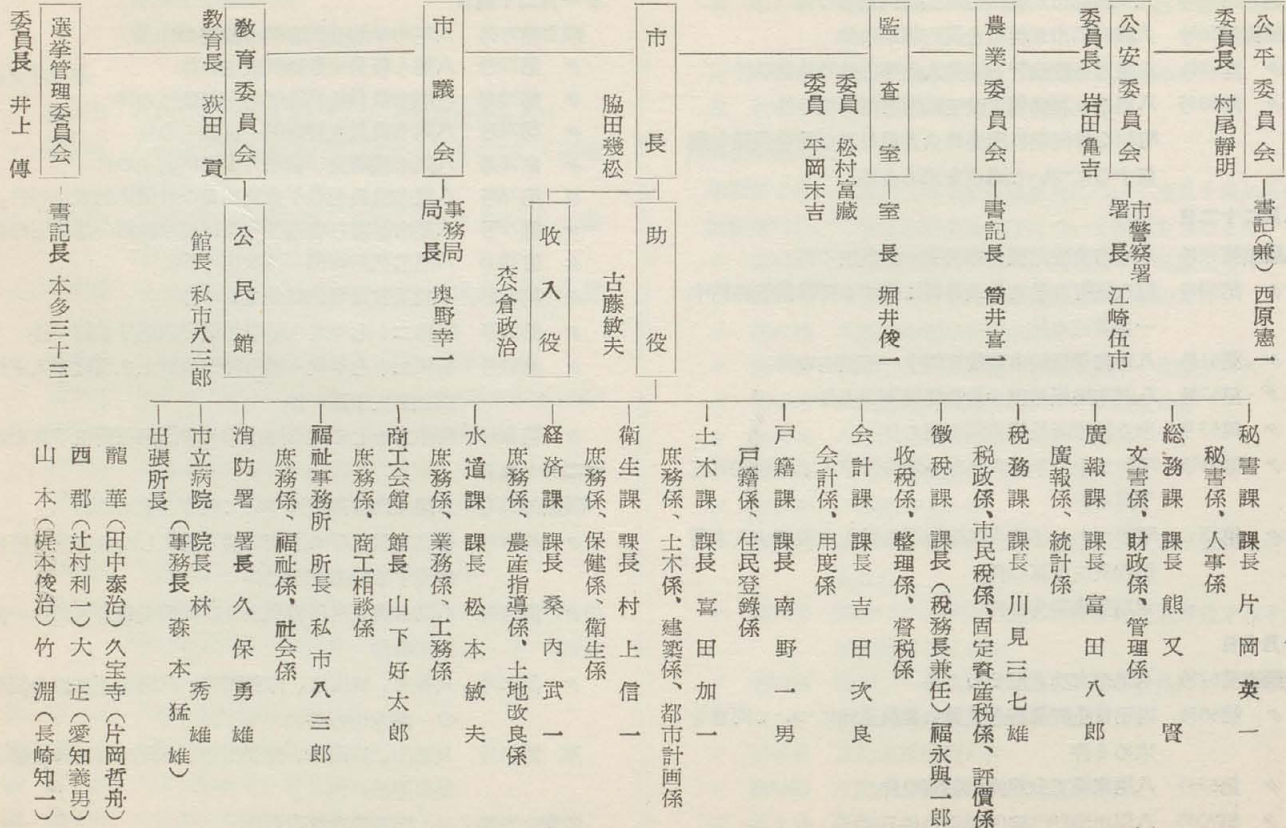 公平委員会―書記(兼) 西原憲一
委員長 村尾靜明
公安委員会―市警察署署長 江崎伍市
委員長 岩田亀吉
農業委員会―書記長 筒井喜一
監査室―室長 堀井俊一
委員 松村富藏
委員 平岡末吉
市長
脇田幾松
助役
古藤敏夫
收入役
杢倉政治
市議会―事務局局長 奥野幸一
教育委員会―公民館
教育長 荻田實
館長 私市八三郎
選挙管理委員会―書記長 本多三十三
委員長 井上傳
秘書課 課長 片岡英一
秘書係、人事係
総務課 課長 熊又賢
文書係、財政係、管理係
廣報課 課長 富田八郎
廣報係、統計係
税務課 課長 川見三七雄
税政係、市民税係、固定資産税係、評價係
徴税課 課長(税務長兼任)福永與一郎
收税係、整理係、督税係
会計課 課長 吉田次良
会計係、用度係
戸籍課 課長 南野一男
戸籍係、住民登錄係
土木課 課長 喜田加一
庶務係、土木係、建築係、都市計画係
衛生課 課長 村上信一
庶務係、保健係、衛生係
経済課 課長 桑内武一
庶務係、農産指導係、土地改良係
水道課 課長 松本敏夫
庶務係、業務係、工務係
商工会館 館長 山下好太郎
庶務係、商工相談係
福祉事務所 所長 私市八三郎
庶務係、福祉係、社会係
消防署 署長 久保勇雄
市立病院 院長 林秀雄
(事務長 森本猛雄)
出張所長
龍華(田中泰治)久宝寺(片岡哲舟)
西郡(辻村利一)大正(愛知義男)
山本(梶本俊治)竹淵(長崎知一)